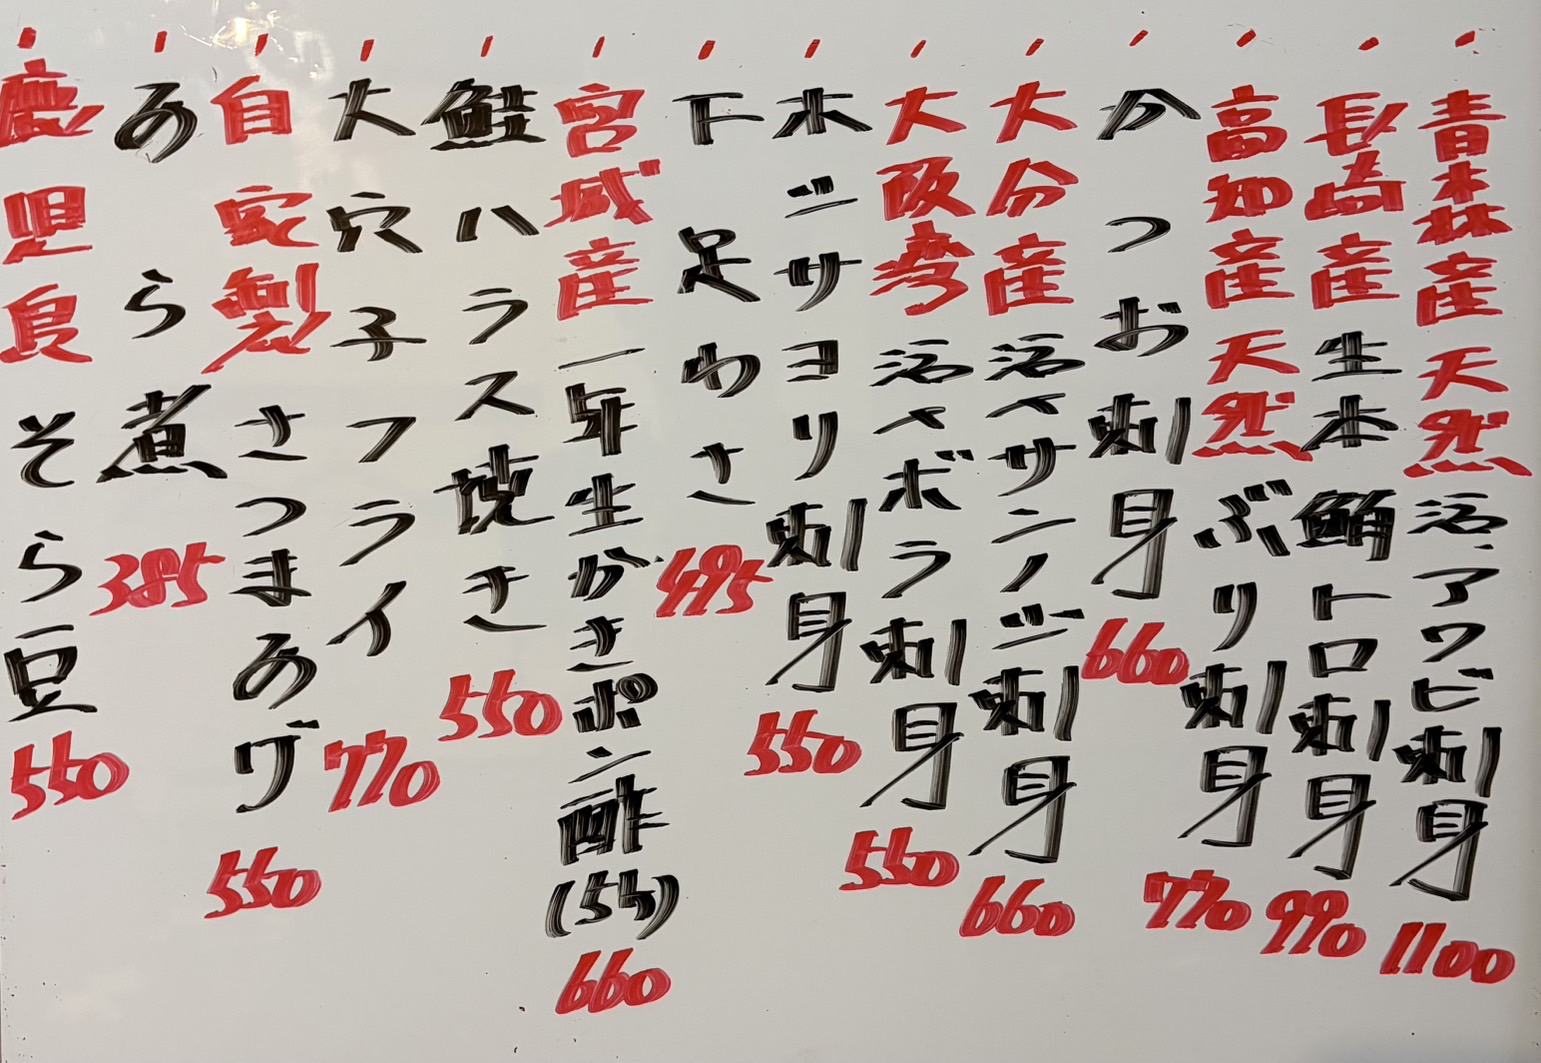 青森産天然活アワビ刺身 1100
長崎産生本鮪トロ刺身 990
高知産天然ぶり刺身 770
かつお刺身 660
大分産活〆サンノジ刺身 660
大阪湾活〆ボラ刺身 550
ホジサヨリ刺身 550
下足わさ 495
宮城産一年生かきポン酢(5ケ) 660
鮭ハラス焼き 550
大穴子フライ 770
自家製さつまあげ 550
あら煮 385
鹿児島そら豆 550